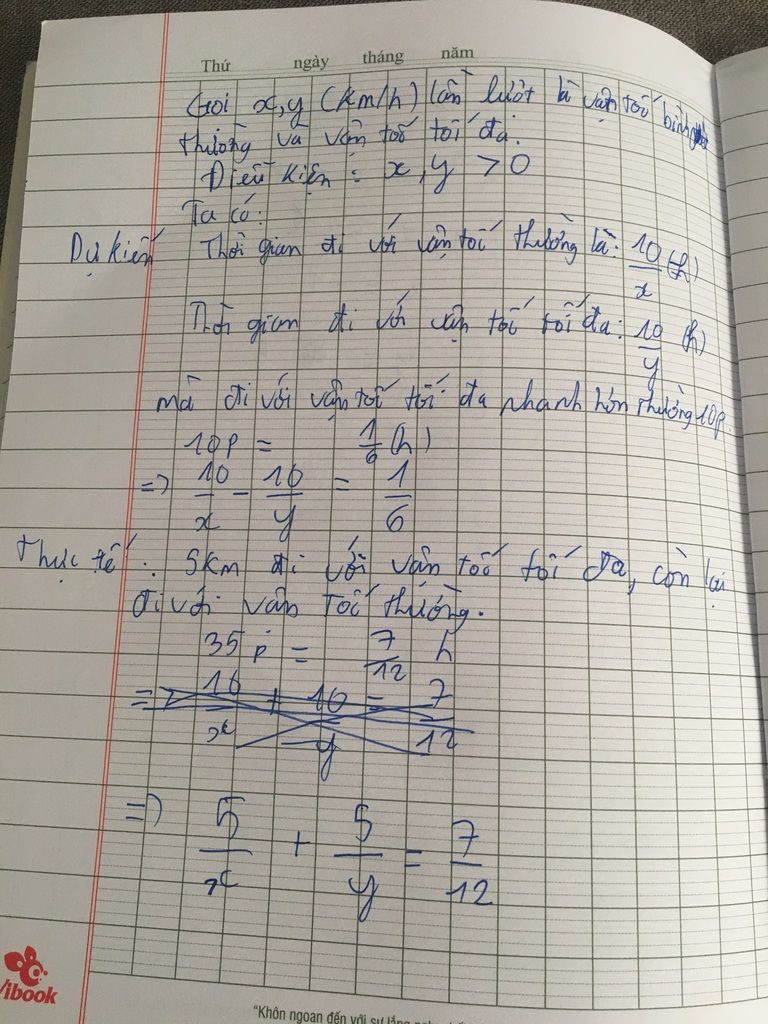 Thứ ngày tháng năm
Gọi x,y (km/h) lần lượt là vận tốc bình
thường và vận tốc tối đa.
Điều kiện : x, y > 0
Ta có:
Dự kiến Thời gian đi với vận tốc thường là: 10/x (h)
Thời gian đi với vận tốc tối đa: 10/y (h)
mà đi với vận tốc tối đa nhanh hơn thường 10p.
10p = 1/6 (h)
=> 10/x - 10/y = 1/6
Thực tế : 5km đi với vận tốc tối đa, còn lại
đi với vận tốc thường.
35 p = 7/12 h
=> 10/x + 10/y = 7/12
=> 5/x + 5/y = 7/12
Vibook
"Khôn ngoan đến với sự lắng